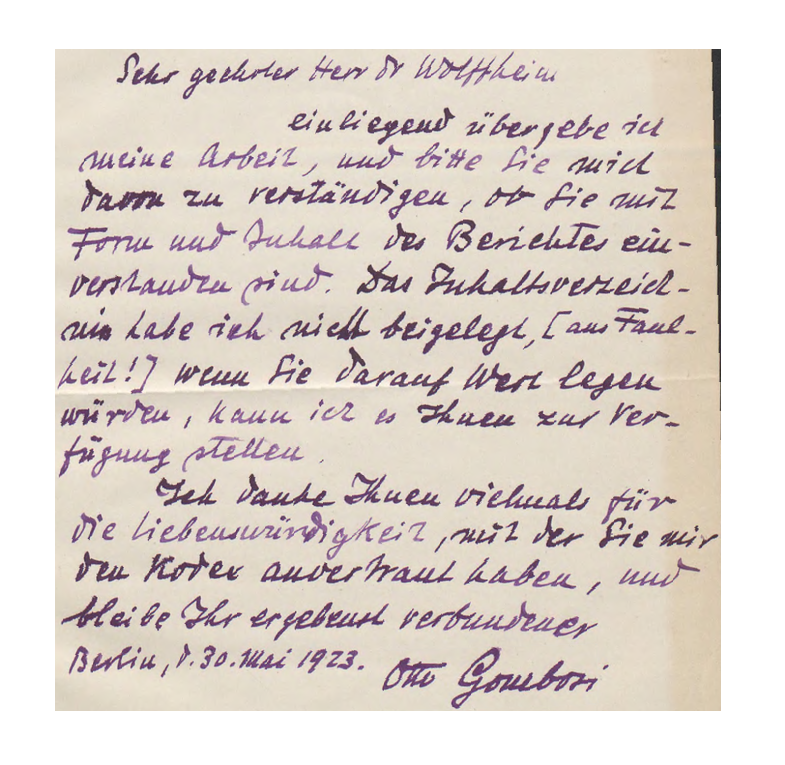 Sehr geehrter Herr Dr Wolffheim
einliegend übergebe ich
meine Arbeit, und bitte Sie mich
davon zu verständigen, ob Sie mit
Form und Inhalt des Berichtes ein-
verstanden sind. Das Inhaltsverzeich-
nis habe ich nicht beigelegt, [aus Faul-
heit!] wenn Sie darauf Wert legen
würden, kann ich es Ihnen zur Ver-
fügung stellen.
Ich danke Ihnen vielmals für
die Liebenswürdigkeit, mit der Sie mir
den Kodex anvertraut haben, und
bleibe Ihr ergebenst verbundener
Berlin, d. 30. Mai 1923. Otto Gombosi